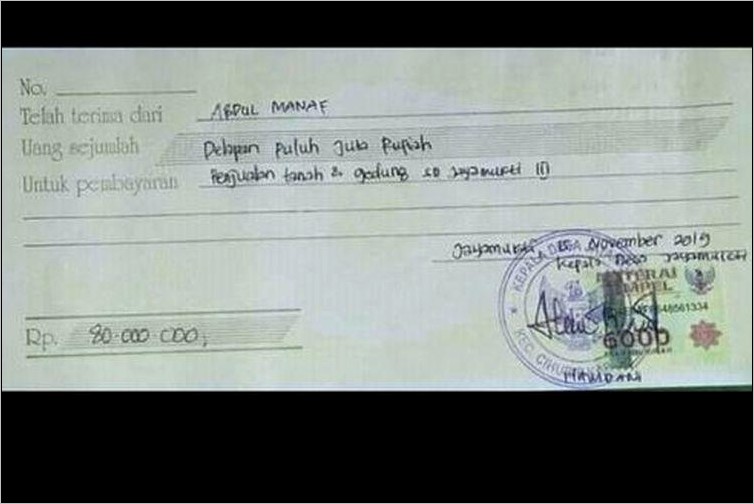 No.
Telah terima dari ABDUL MANAF
Uang sejumlah Delapan puluh Juta Rupiah
Untuk pembayaran Penjualan tanah & gedung SD Jayamukti II
Jayamukti November 2019
Kepala Desa Jayamukti
KEPALA DESA
METERAI
TEMPEL
6000
Rp. 80.000.000,
KEC. CIHU
HAMDANI